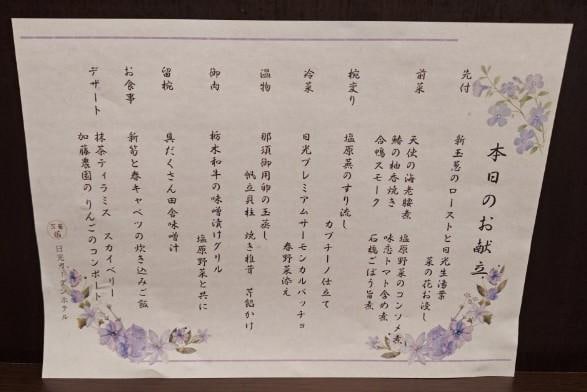 本日のお献立
先付
新玉葱のローストと日光生湯葉
菜の花お浸し
前菜
天使の海老腰煮 塩原野菜のコンソメ煮
鰆の柚香焼き 味恋トマト含め煮
合鴨スモーク 石橋ごぼう旨煮
椀変り
塩原蕪のすり流し
カプチーノ仕立て
冷菜
日光プレミアムサーモンカルパッチョ
春野菜添え
温物
那須御用卵の玉蒸し
帆立貝柱 焼き椎茸 芹餡かけ
御肉
栃木和牛の味噌漬けグリル
塩原野菜と共に
留椀
具だくさん田舎味噌汁
お食事
新筍と春キャベツの炊き込みご飯
デザート
抹茶ティラミス スカイベリー
加藤農園のりんごのコンポート
日光ガーデンホテル